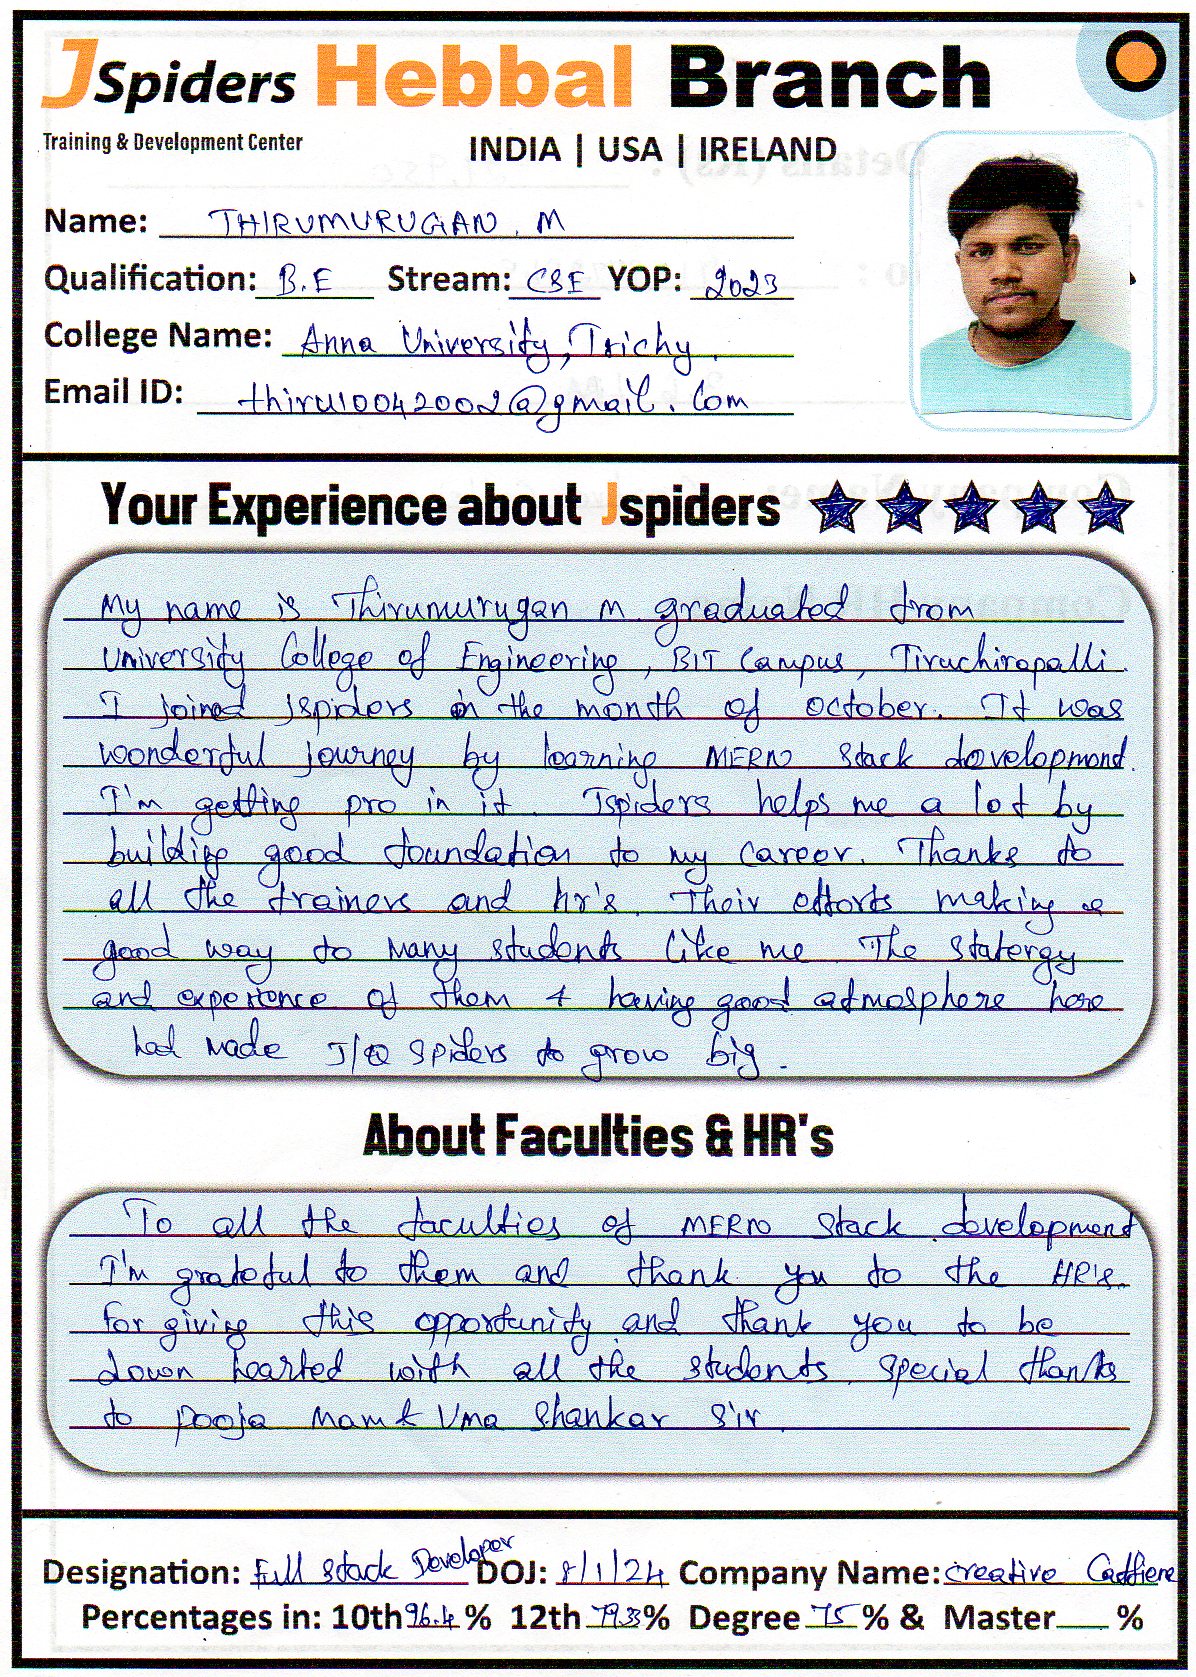 JSpiders Hebbal Branch
Training & Development Center
INDIA | USA | IRELAND
Name: THIRUMURUGAN. M
Qualification: B.E Stream: CSE YOP: 2023
College Name: Anna University, Trichy.
Email ID: thiru10042002@gmail.com
Your Experience about Jspiders
My name is Thirumurugan M graduated from
University College of Engineering, BIT Campus, Tiruchirapalli.
I joined Jspiders in the month of october. It was
wonderful journey by learning MERN Stack development.
I'm getting pro in it Jspiders helps me a lot by
building good foundation to my career. Thanks to
all the trainers and hr's. Their efforts making a
good way to many students like me The Statergy
and experience of them & having good atmosphere here
had made J/Q Spiders to grow big.
About Faculties & HR's
To all the faculties of MERN Stack development
I'm grateful to them and thank you to the HR's.
for giving this opportunity and thank you to be
down hearted with all the students. Special thanks
to Pooja Mam & Uma Shankar Sir
Designation: Full Stack Developer DOJ: 8/1/24 Company Name: Creative
Percentages in: 10th 96.4 % 12th 79.33 % Degree 75 % & Master %